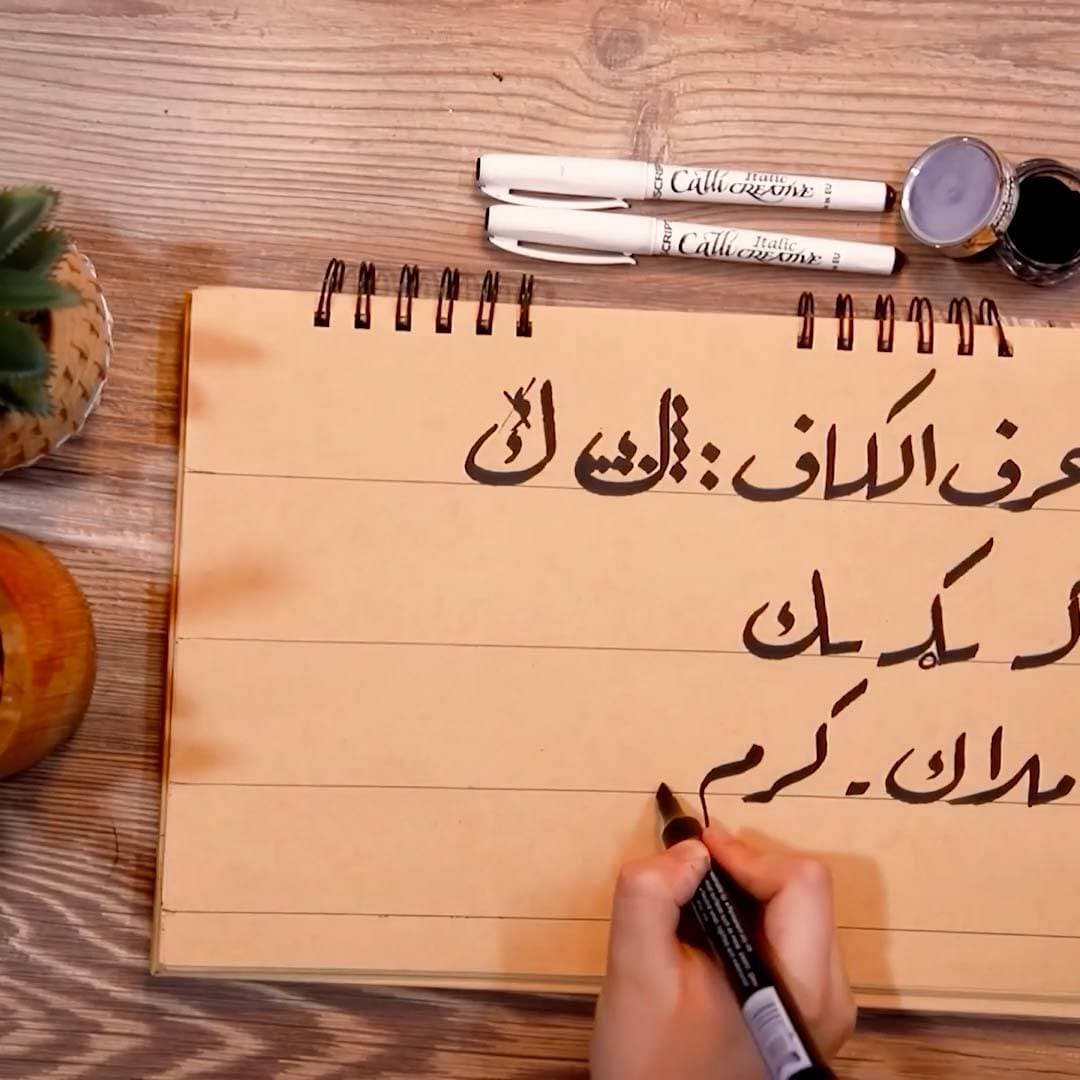 SCRIPT Calli Italic CREATIVE
SCRIPT Calli Italic CREATIVE
حرف الكاف : ك ك
كـ ـكـ ـك
ملاك - كرم